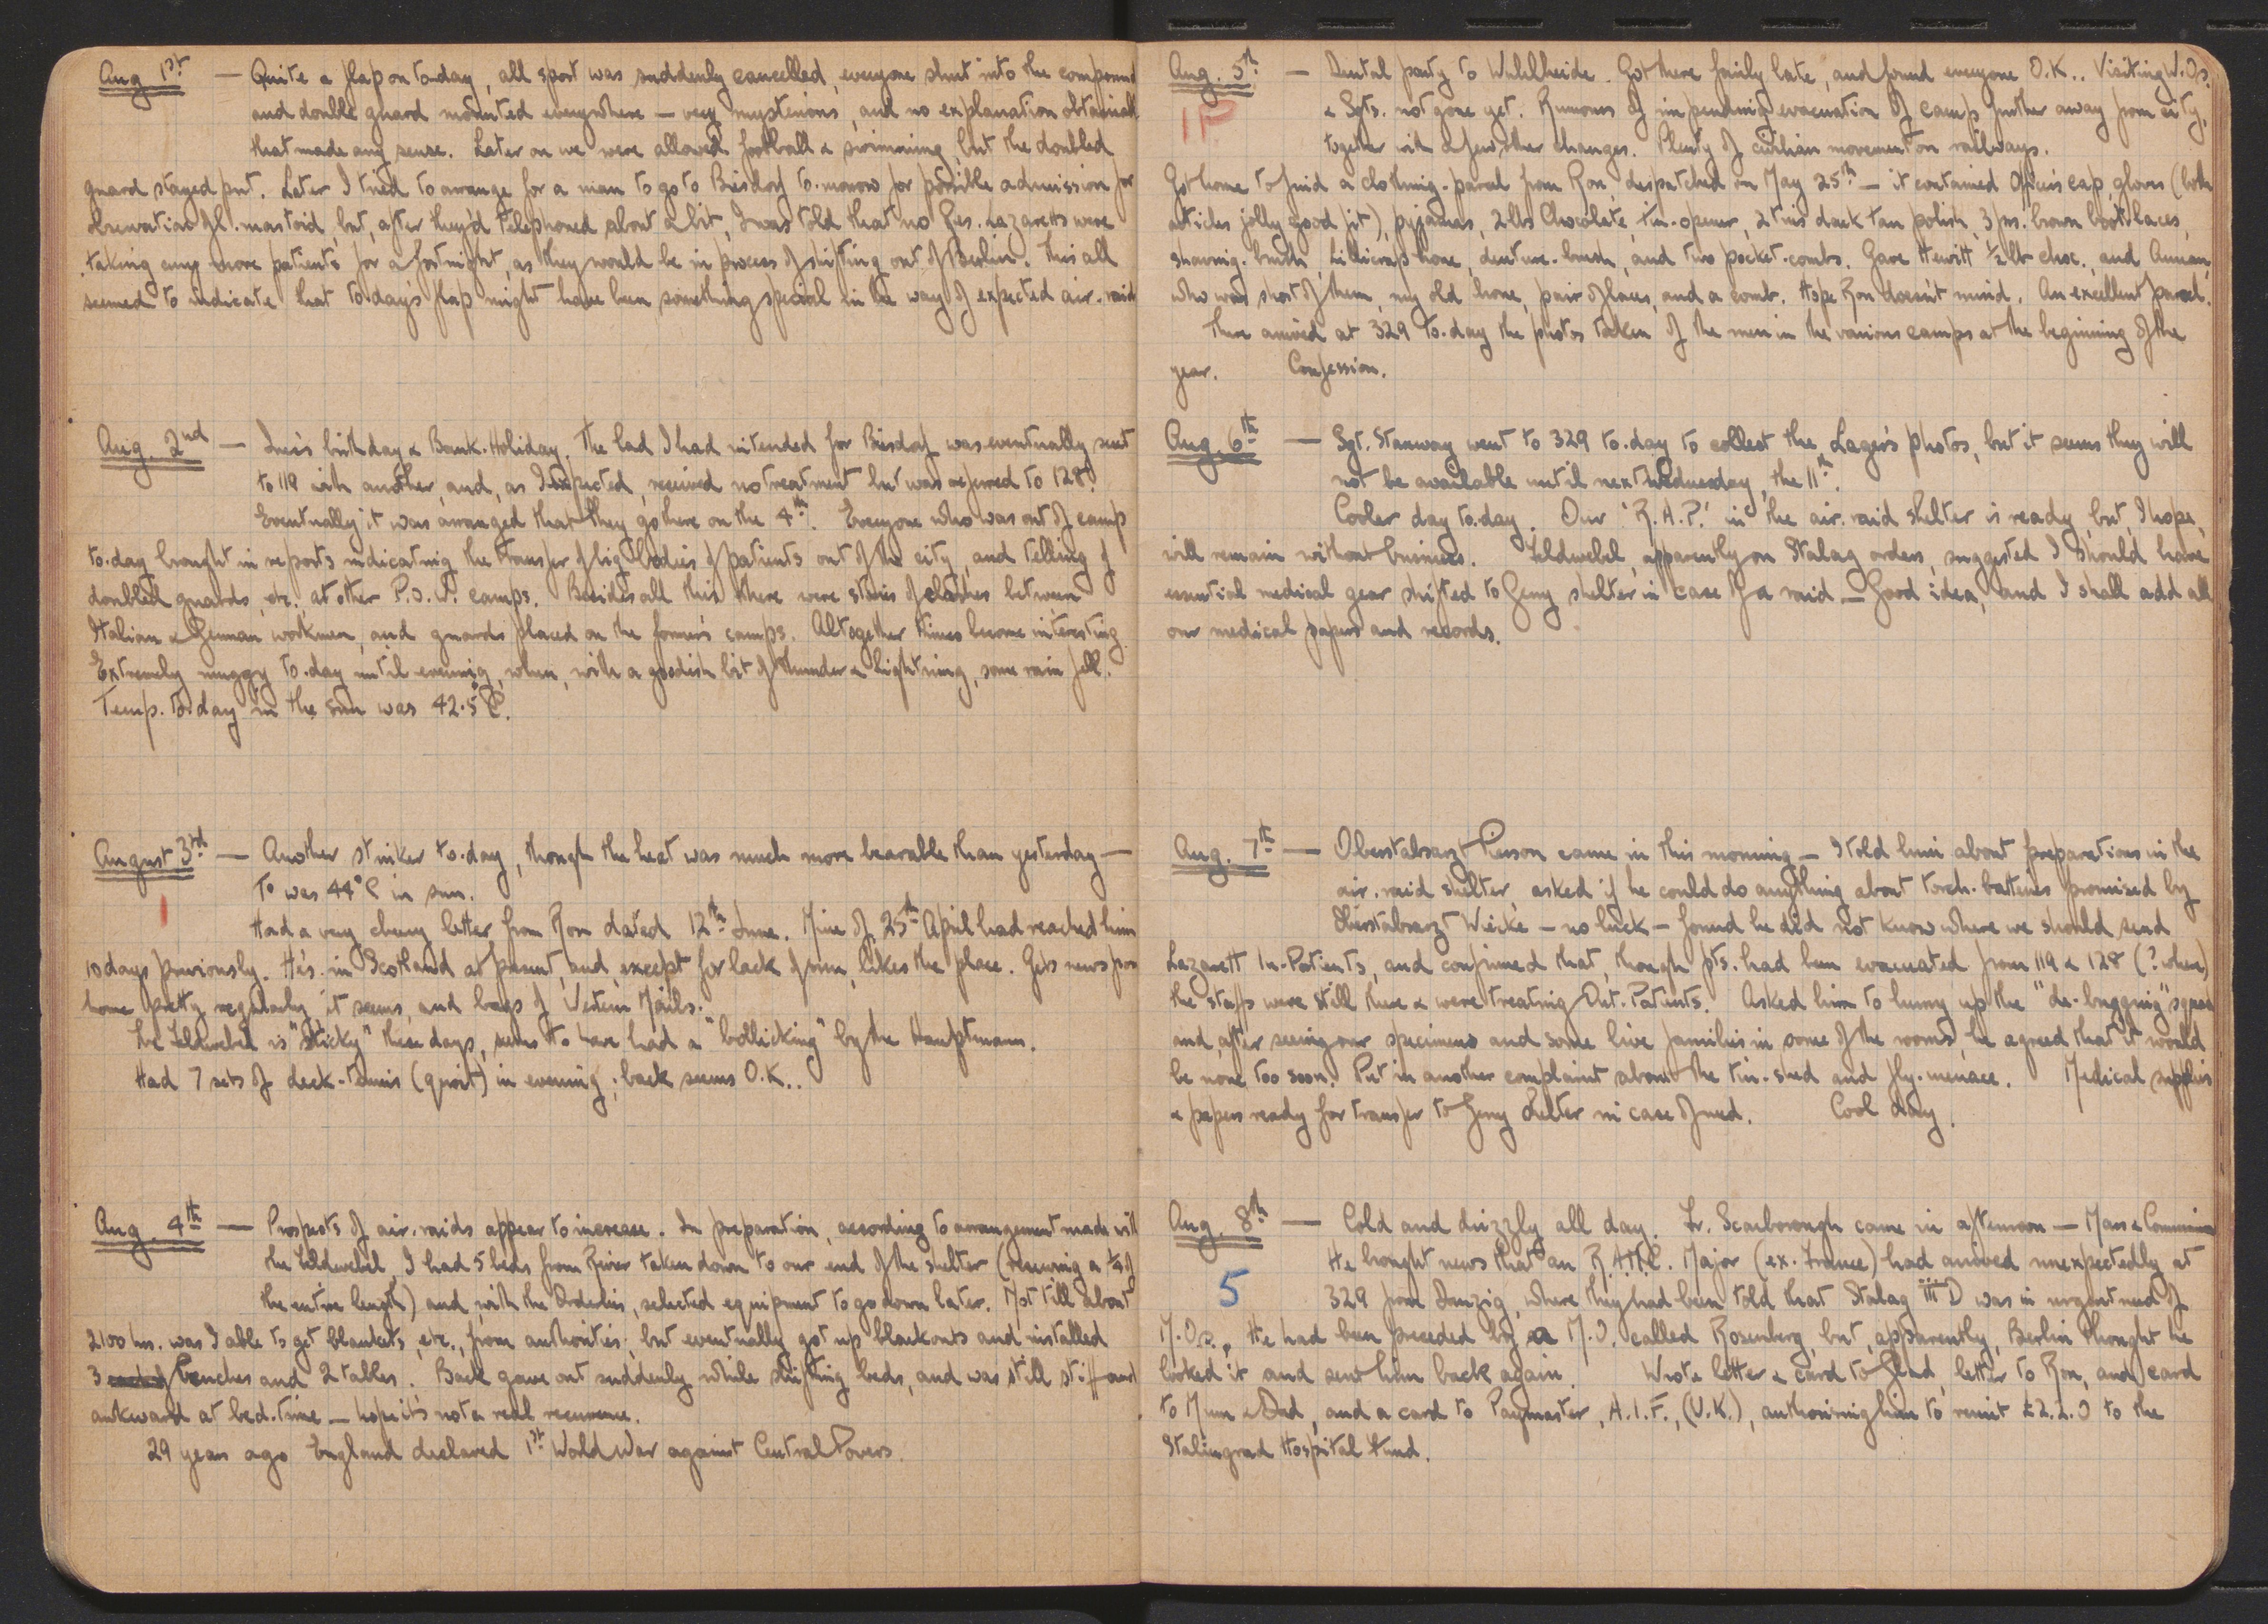 Aug 1st — Quite a flap on to-day, all sport was suddenly cancelled, everyone shut into the compound
and double guard mounted everywhere — very mysterious, and no explanation obtainable
that made any sense. Later on we were allowed football & swimming, but the doubled
guard stayed put. Later I tried to arrange for a man to go to Biesdorf to-morrow for possible admission for
observation of l. mastoid, but, after they'd telephoned about a bit, I was told that no Res. Lazaretts were
taking any more patients for a fortnight, as they would be in process of shifting out of Berlin. This all
seemed to indicate that to-day's flap might have been something special in the way of expected air-raid
Aug. 2nd — birthday & Bank-Holiday. The lad I had intended for Biesdorf was eventually sent
to 119 with another, and, as I expected, received no treatment but was referred to 128.
Eventually it was arranged that they go there on the 4th. Everyone who was out of camp
to-day brought in reports indicating the transfer of big bodies of patients out of the city, and telling of
doubled guards, etc., at other P.O.W. camps. Besides all this there were stories of clashes between
Italian & German workmen, and guards placed on the former's camps. Altogether things become interesting.
Extremely muggy to-day until evening, when, with a goodish bit of thunder & lightning, some rain fell.
Temp. to-day in the sun was 42.5°C.
August 3rd — Another stinker to-day, though the heat was much more bearable than yesterday —
1
T° was 44°C in sun.
Had a very cheery letter from Ron dated 12th June. Mine of 25th April had reached him
10 days previously. He's in Scotland at present, and, except for lack of sun, likes the place. Gets news from
home pretty regularly it seems, and bags of Western Mails.
The Feldwebel is "sticky" these days, seems to have had a "bollicking" by the Hauptmann.
Had 7 sets of deck-tennis (quoit) in evening; back seems O.K..
Aug. 4th — Prospects of air-raids appear to increase. In preparation, according to arrangement made with
the Feldwebel, I had 5 beds from Revier taken down to our end of the shelter (reserving a ¼ of
the entire length) and, with the Orderlies, selected equipment to go down later. Not till about
2100 hrs. was I able to get blankets, etc., from authorities, but eventually got up blackouts and installed
3 benches and 2 tables. Back gave out suddenly while shifting beds, and was still stiff and
awkward at bed-time — hope it's not a real recurrence.
29 years ago England declared 1st World War against Central Powers.
Aug. 5th — Dental party to Wuhlheide. Got there fairly late, and found everyone O.K.. Visiting W.Os.
1P
& Sgts. not gone yet. Rumours of impending evacuation of camp further away from city,
together with a few other changes. Plenty of civilian movement on railways.
Got home to find a clothing-parcel from Ron despatched on May 25th — it contained Officer's cap, gloves (both
articles jolly good fit), pyjamas, 2 lbs Chocolate, tin-opener, 2 tins dark tan polish, 3 prs. brown bootlaces,
shaving-brush, Lillicrap hone, denture-brush, and two pocket-combs. Gave Hewitt ½ lb choc., and Annan,
who was short of them, my old hone, pair of laces, and a comb. Hope Ron doesn't mind. An excellent parcel.
There arrived at 329 to-day the photos taken of the men in the various camps at the beginning of the
year. Confession.
Aug. 6th — Sgt. Stanway went to 329 to-day to collect the Lager's photos, but it seems they will
not be available until next Wednesday, the 11th.
Cooler day to-day. Our 'R.A.P.' in the air-raid shelter is ready but, I hope,
will remain without business. Feldwebel, apparently on Stalag orders, suggested I should have
essential medical gear shifted to Gerry shelter in case of a raid — Good idea, and I shall add all
our medical papers and records.
Aug. 7th — Oberstabsarzt Pierson came in this morning — I told him about preparations in the
air-raid shelter, asked if he could do anything about torch-batteries promised by
Oberstabsarzt Wicke — no luck — found he did not know where we should send
Lazarett In-Patients, and confirmed that, though pts. had been evacuated from 119 & 128 (? where)
the staffs were still there & were treating Out-Patients. Asked him to hurry up the "de-bugging" squad
and, after seeing our specimens and some live families in some of the rooms, he agreed that it would
be none too soon. Put in another complaint about the tin-shed and fly-menace. Medical supplies
& papers ready for transfer to Gerry shelter in case of need. Cool day.
Aug. 8th — Cold and drizzly all day. Fr. Scarborough came in afternoon — Mass & Communion
He brought news that an R.A.M.C. Major (ex-France) had arrived unexpectedly at
5
329 from Danzig, where they had been told that Stalag IIID was in urgent need of
M.Os. He had been preceded by a M.O. called Rosenberg, but, apparently, Berlin thought he
looked it and sent him back again. Wrote letter & card to Glad, letter to Ron, and card
to Mum & Dad, and a card to Paymaster, A.I.F., (U.K.), authorising him to remit £2.2.0 to the
Stalingrad Hospital Fund.